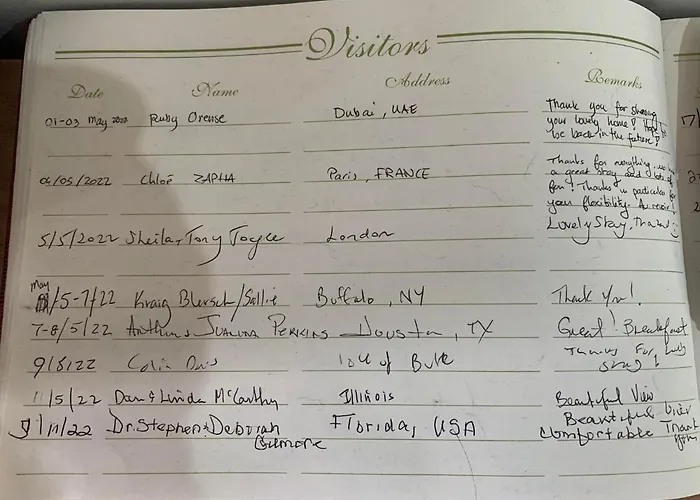 Visitors
Date Name Address Remarks
01-03 May 2022 Ruby Orense Dubai, UAE Thank you for sharing
your lovely home! Hope to
be back in the future!
04/05/2022 Chloé ZAPHA Paris, FRANCE Thanks for everything, we had
a great stay and lots of
fun! Thanks in particular for
your flexibility. Au revoir!
5/5/2022 Sheila, Tony Joyce London Lovely Stay, Thanks
May
5-7/22 Kraig Blersch/Sallie Buffalo, NY Thank You!
7-8/5/22 Perkins Houston, TX Great! Breakfast
9/5/22 Colin Isle of Bute Thanks For Lovely
Stay!
11/5/22 Dan & Linda McCarthy Illinois Beautiful View
Beautiful View
5/11/22 Dr. Stephen & Deborah Florida, USA Comfortable Thank
Gilmore You